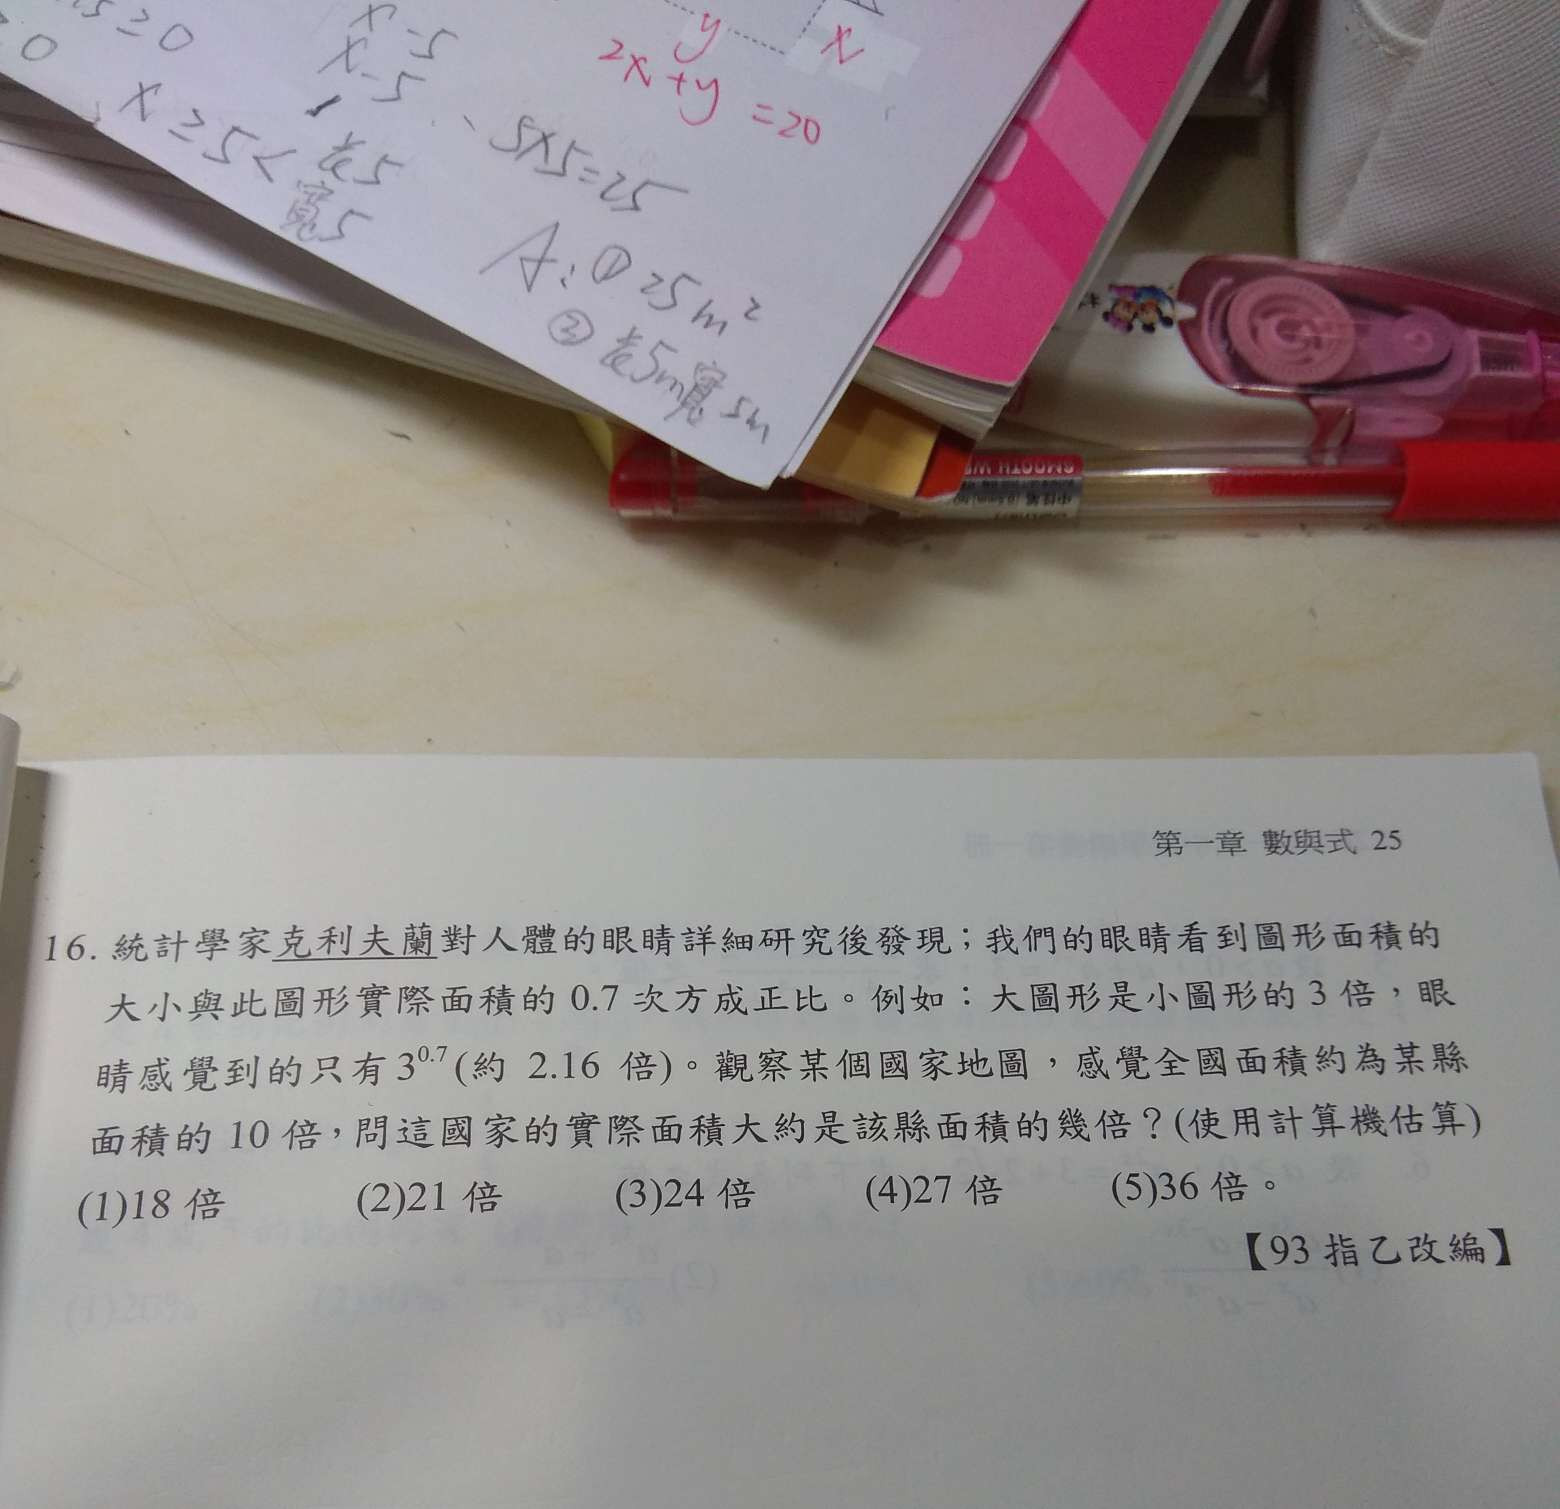 ≥0
x-5
x-5
y
x
2x+y=20
x≥5<
長5
寬5
5x5=25
A:①25m²
②長5m寬5m
SMOOTH
第一章 數與式 25
16. 統計學家克利夫蘭對人體的眼睛詳細研究後發現；我們的眼睛看到圖形面積的
大小與此圖形實際面積的 0.7 次方成正比。例如：大圖形是小圖形的 3 倍，眼
睛感覺到的只有 3^0.7 (約 2.16 倍)。觀察某個國家地圖，感覺全國面積約為某縣
面積的 10 倍，問這國家的實際面積大約是該縣面積的幾倍？(使用計算機估算)
(1)18 倍 (2)21 倍 (3)24 倍 (4)27 倍 (5)36 倍。
【93 指乙改編】